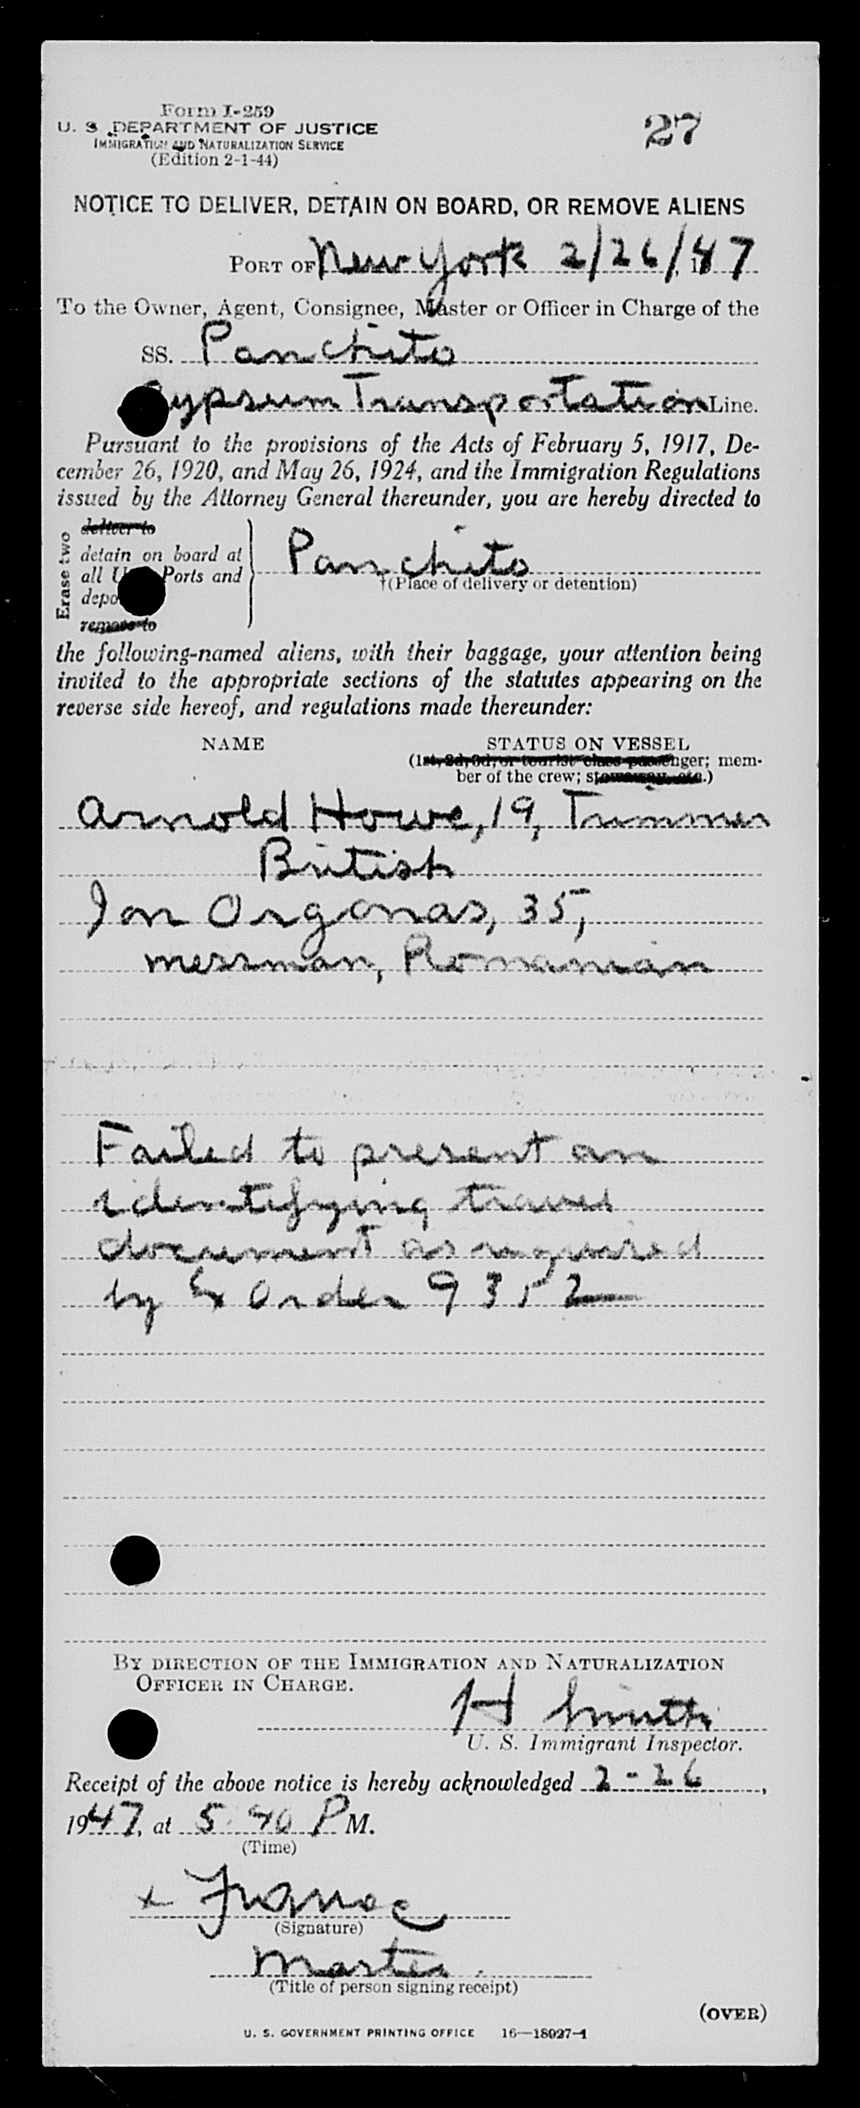 Form I-259
U. S. DEPARTMENT OF JUSTICE
IMMIGRATION AND NATURALIZATION SERVICE
(Edition 2-1-44)
27
NOTICE TO DELIVER, DETAIN ON BOARD, OR REMOVE ALIENS
PORT OF New York 2/26/47
To the Owner, Agent, Consignee, Master or Officer in Charge of the
SS. Panchito
Gypsum Transportation Line.
Pursuant to the provisions of the Acts of February 5, 1917, De-
cember 26, 1920, and May 26, 1924, and the Immigration Regulations
issued by the Attorney General thereunder, you are hereby directed to
Erase two
deliver to
detain on board at
all U. Ports and
depo
remove to
Panchito
†(Place of delivery or detention)
the following-named aliens, with their baggage, your attention being
invited to the appropriate sections of the statutes appearing on the
reverse side hereof, and regulations made thereunder:
NAME STATUS ON VESSEL
(1st, 2d, 3d, or tourist class passenger; mem-
ber of the crew; stowaway, etc.)
Arnold Howe, 19, Trimmer
British
Ion Orgonas, 35,
messman, Romanian
Failed to present an
identifying travel
document as required
by Ex Order 9352
BY DIRECTION OF THE IMMIGRATION AND NATURALIZATION
OFFICER IN CHARGE.
H Smith
U. S. Immigrant Inspector.
Receipt of the above notice is hereby acknowledged 2-26,
1947, at 5 40 P M.
(Time)
x
(Signature)
Master.
(Title of person signing receipt)
(OVER)
U. S. GOVERNMENT PRINTING OFFICE 16—18027-1